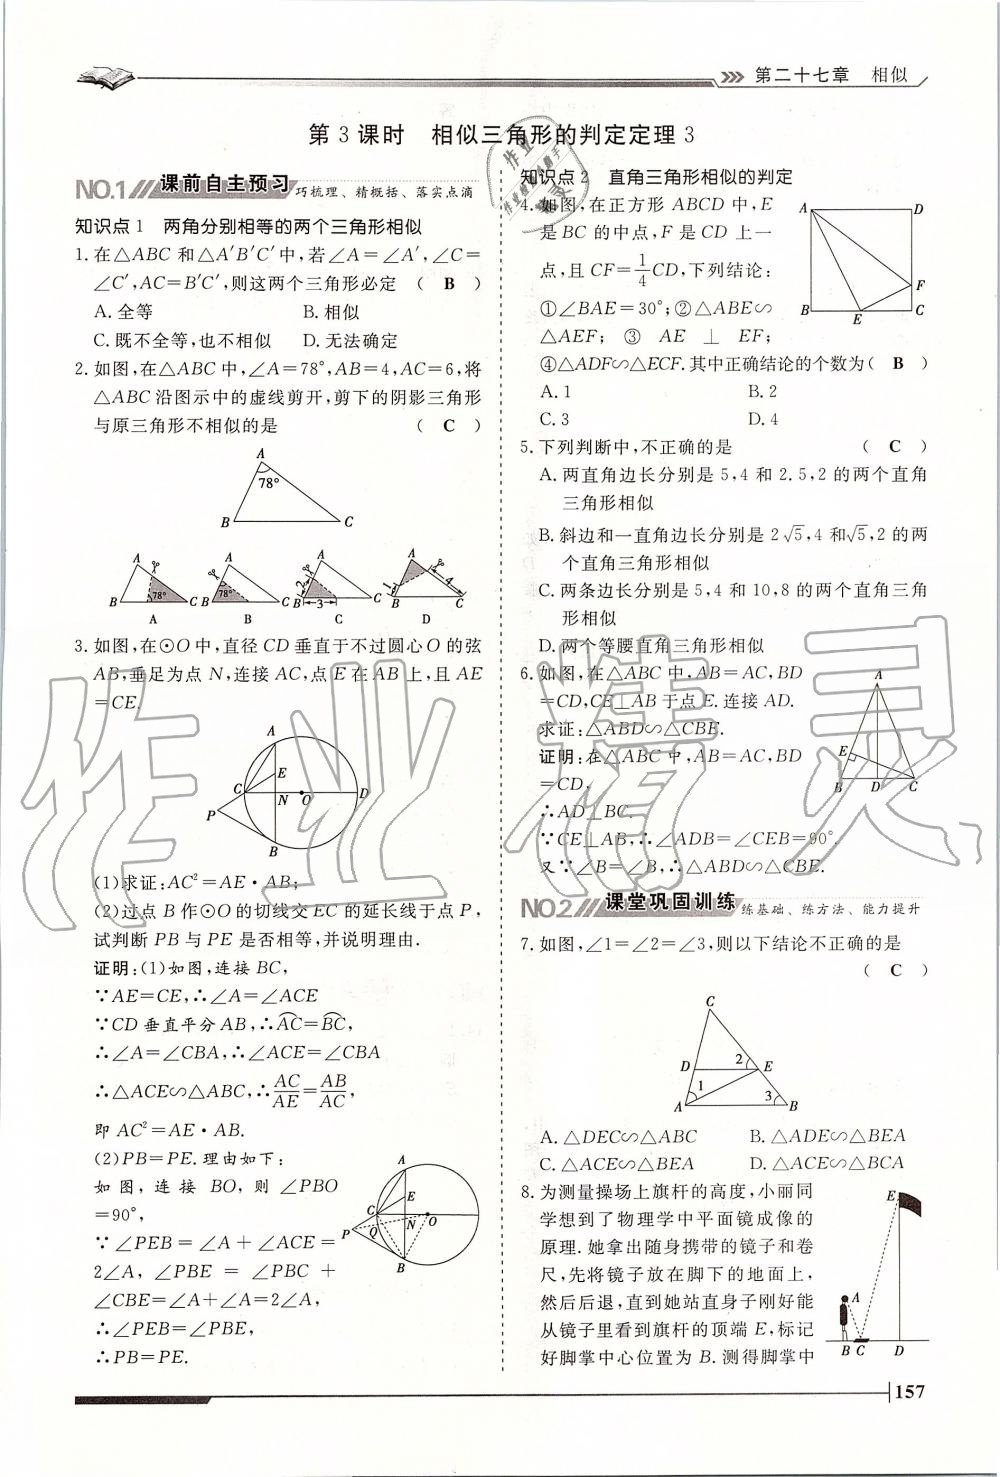 第二十七章 相似
第3课时 相似三角形的判定定理3
NO.1 课前自主预习 巧梳理、精概括、落实点滴
知识点1 两角分别相等的两个三角形相似
1.在△ABC和△A′B′C′中,若∠A=∠A′,∠C=
∠C′,AC=B′C′,则这两个三角形必定 ( B )
A.全等 B.相似
C.既不全等,也不相似 D.无法确定
2.如图,在△ABC中,∠A=78°,AB=4,AC=6,将
△ABC沿图示中的虚线剪开,剪下的阴影三角形
与原三角形不相似的是 ( C )
A
78°
B C
A A A A
78° 78° 2 3 1 4
B C B C B C B C
A B C D
3.如图,在⊙O中,直径CD垂直于不过圆心O的弦
AB,垂足为点N,连接AC,点E在AB上,且AE
=CE.
A
E
C N O D
P
B
(1)求证:AC²=AE·AB;
(2)过点B作⊙O的切线交EC的延长线于点P,
试判断PB与PE是否相等,并说明理由.
证明:(1)如图,连接BC,
∵AE=CE,∴∠A=∠ACE
∵CD垂直平分AB,∴AC=BC,
∴∠A=∠CBA,∴∠ACE=∠CBA
∴△ACE∽△ABC,∴AC/AE=AB/AC,
即AC²=AE·AB.
(2)PB=PE.理由如下:
如图,连接BO,则∠PBO
=90°,
∵∠PEB=∠A+∠ACE=
2∠A,∠PBE=∠PBC+
∠CBE=∠A+∠A=2∠A,
∴∠PEB=∠PBE,
∴PB=PE.
A
E
C
N O
P Q
B
知识点2 直角三角形相似的判定
4.如图,在正方形ABCD中,E
是BC的中点,F是CD上一
点,且CF=1/4CD,下列结论:
①∠BAE=30°;②△ABE∽
△AEF;③AE⊥EF;
④△ADF∽△ECF.其中正确结论的个数为( B )
A D
F
B E C
A.1 B.2
C.3 D.4
5.下列判断中,不正确的是 ( C )
A.两直角边长分别是5,4和2.5,2的两个直角
三角形相似
B.斜边和一直角边长分别是2√5,4和√5,2的两
个直角三角形相似
C.两条边长分别是5,4和10,8的两个直角三角
形相似
D.两个等腰直角三角形相似
6.如图,在△ABC中,AB=AC,BD
=CD,CE⊥AB于点E.连接AD.
求证:△ABD∽△CBE.
证明:在△ABC中,AB=AC,BD
=CD,
∴AD⊥BC.
∵CE⊥AB,∴∠ADB=∠CEB=90°.
又∵∠B=∠B,∴△ABD∽△CBE.
A
E
B D C
NO.2 课堂巩固训练 练基础、练方法、能力提升
7.如图,∠1=∠2=∠3,则以下结论不正确的是
( C )
C
D 2 E
1 3
A B
A.△DEC∽△ABC B.△ADE∽△BEA
C.△ACE∽△BEA D.△ACE∽△BCA
8.为测量操场上旗杆的高度,小丽同
学想到了物理学中平面镜成像的
原理.她拿出随身携带的镜子和卷
尺,先将镜子放在脚下的地面上,
然后后退,直到她站直身子刚好能
从镜子里看到旗杆的顶端E,标记
好脚掌中心位置为B.测得脚掌中
E
A
B C D
157
作业精灵